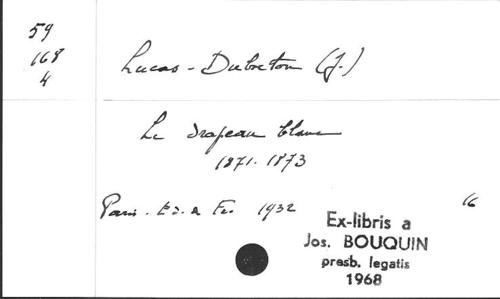 59
168
4
Lucas-Dubreton (J.)
Le drapeau blanc
1871-1873
Paris. Ed. de Fr. 1932
16
Ex-libris a
Jos. BOUQUIN
presb. legatis
1968